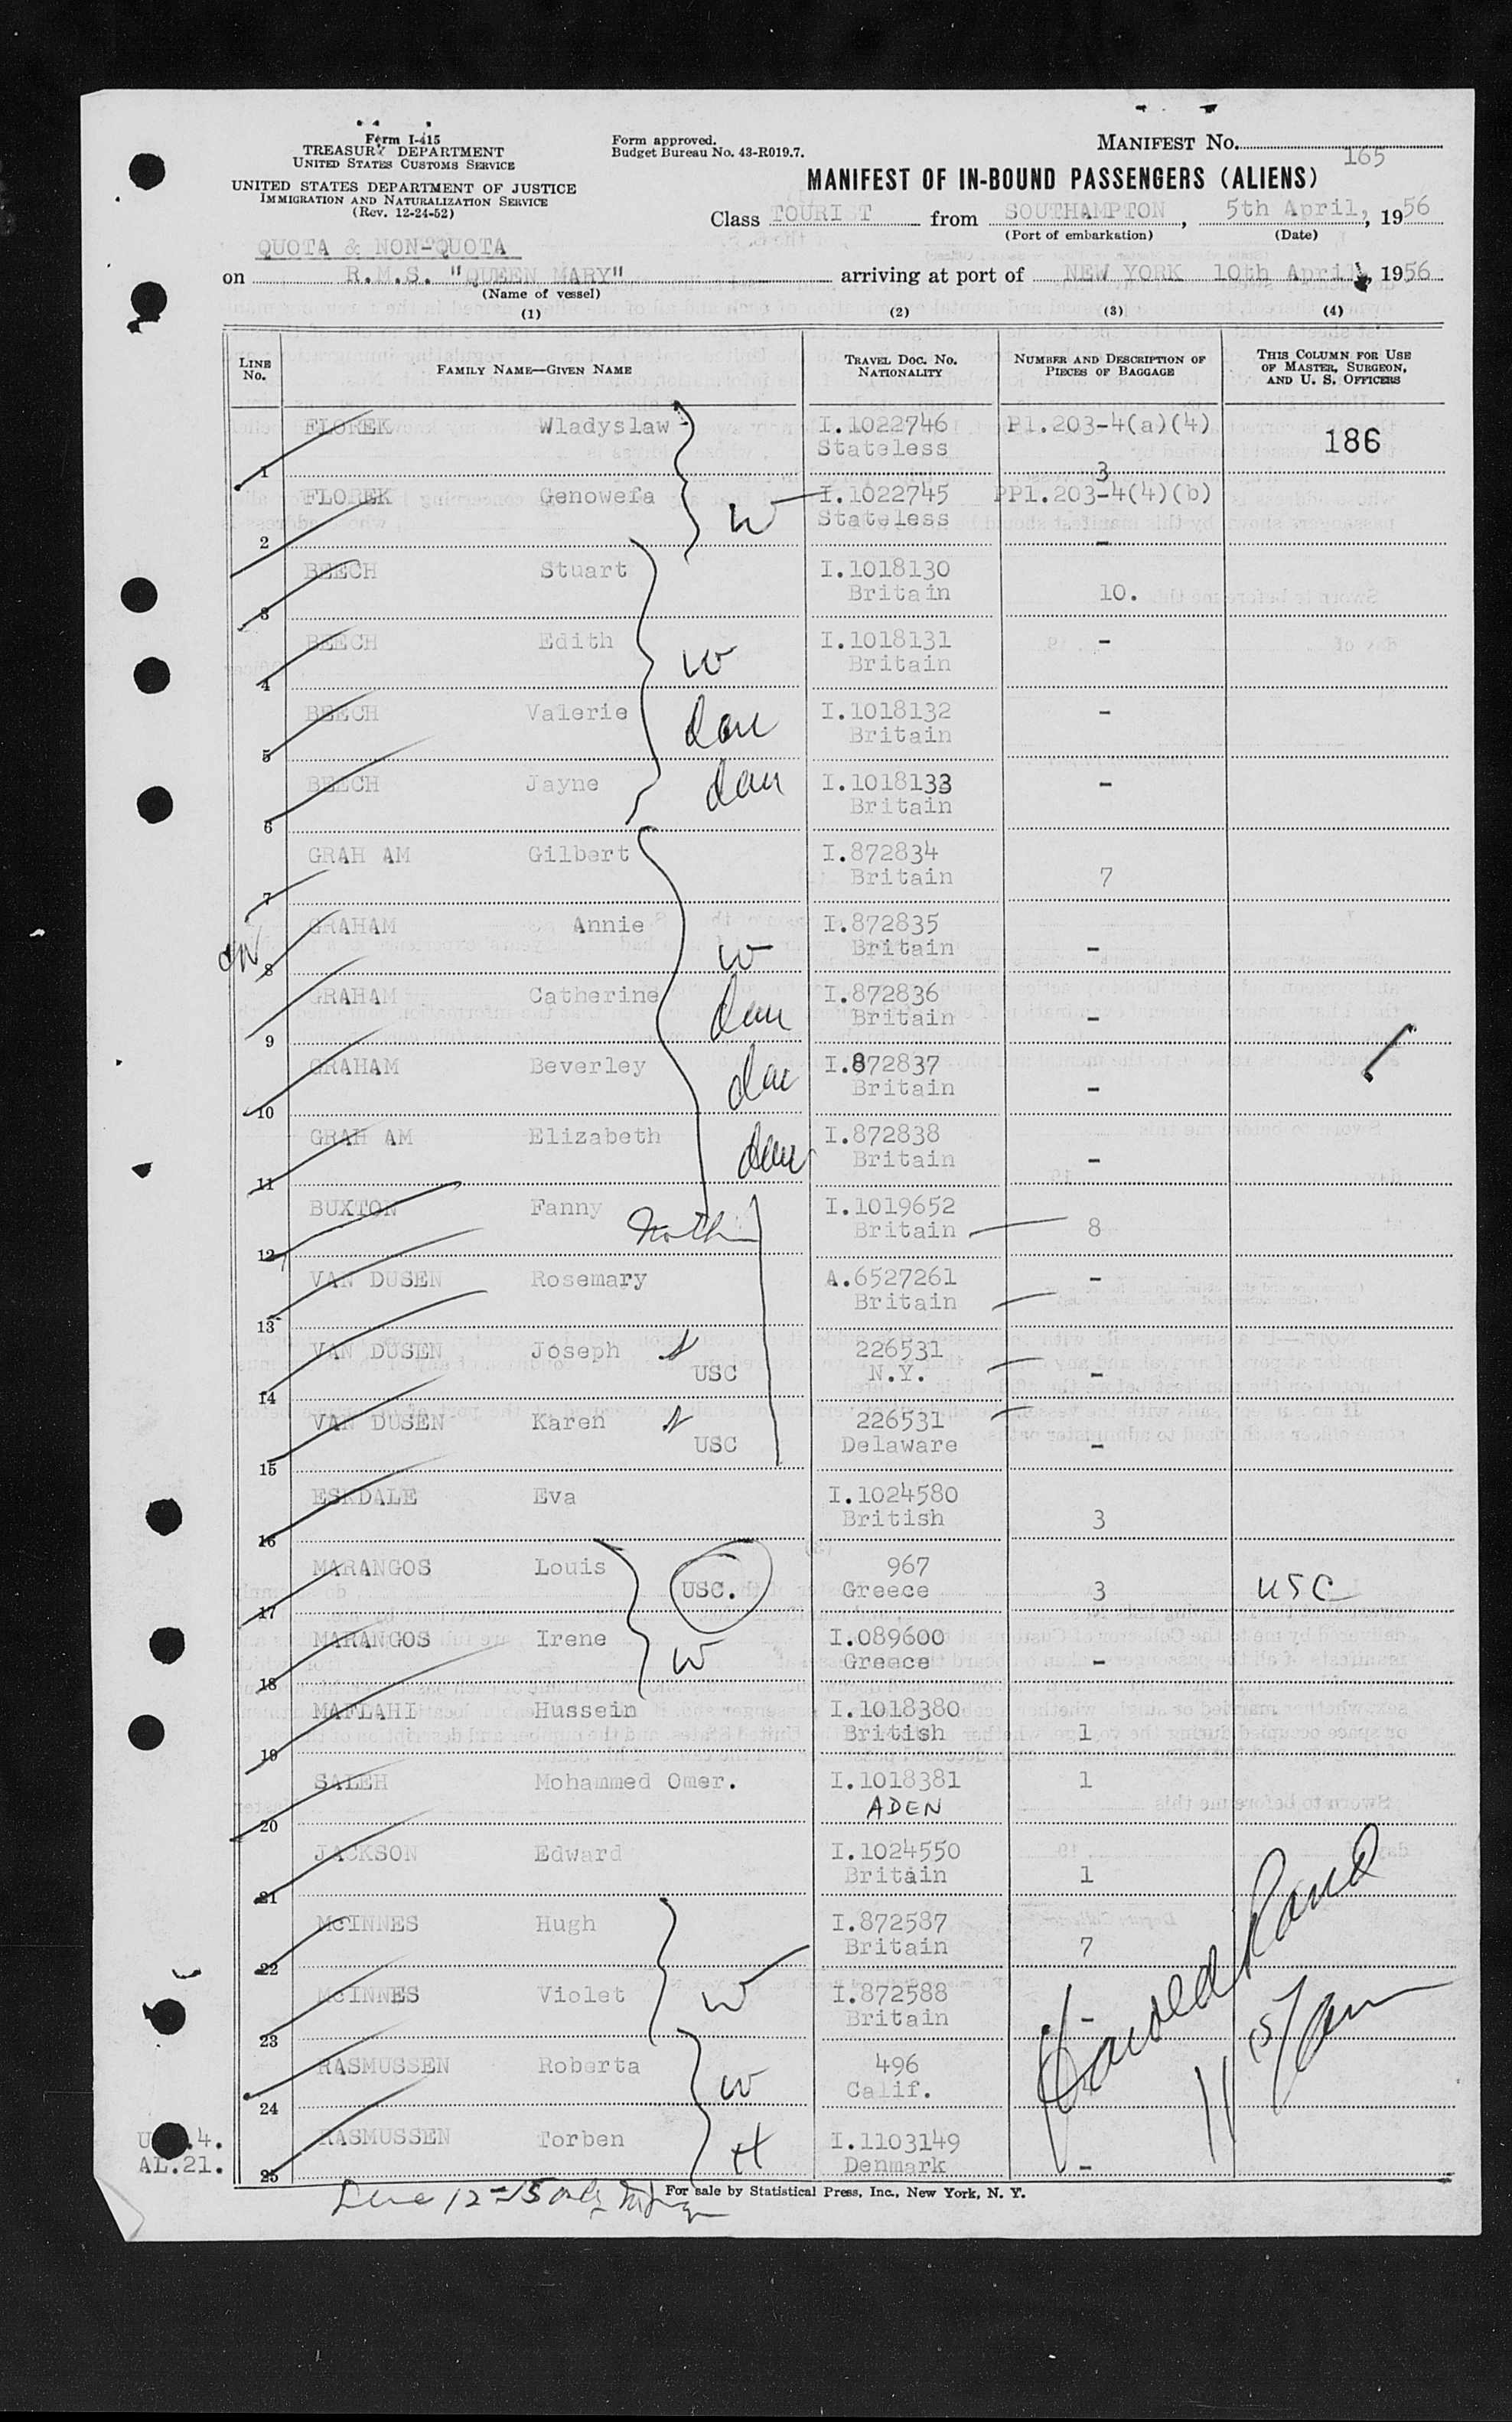 Form I-415
TREASURY DEPARTMENT
UNITED STATES CUSTOMS SERVICE
UNITED STATES DEPARTMENT OF JUSTICE
IMMIGRATION AND NATURALIZATION SERVICE
(Rev. 12-24-52)
Form approved.
Budget Bureau No. 43-R019.7.
MANIFEST NO.
165
MANIFEST OF IN-BOUND PASSENGERS (ALIENS)
Class TOURIST from SOUTHAMPTON, 5th April, 1956
(Port of embarkation) (Date)
QUOTA & NON-QUOTA
on R.M.S. "QUEEN MARY" arriving at port of NEW YORK 10th April, 1956
(Name of vessel)
(1) (2) (3) (4)
LINE No. FAMILY NAME—GIVEN NAME TRAVEL DOC. NO. NATIONALITY NUMBER AND DESCRIPTION OF PIECES OF BAGGAGE THIS COLUMN FOR USE OF MASTER, SURGEON, AND U. S. OFFICERS
FLOREK Wladyslaw I.1022746 P1.203-4(a)(4)
Stateless 186
1 3
FLOREK Genowefa I.1022745 PP1.203-4(4)(b)
W Stateless
2 -
BEECH Stuart I.1018130
Britain 10.
3
BEECH Edith I.1018131 -
W Britain
4
BEECH Valerie I.1018132 -
dau Britain
5
BEECH Jayne dau I.1018133 -
Britain
6
GRAH AM Gilbert I.872834
Britain 7
7
GRAHAM Annie I.872835
W Britain -
8
GRAHAM Catherine I.872836
dau Britain -
9
GRAHAM Beverley I.872837
dau Britain -
10
GRAH AM Elizabeth I.872838
dau Britain -
11
BUXTON Fanny I.1019652
Britain 8
12
VAN DUSEN Rosemary A.6527261 -
Britain
13
VAN DUSEN Joseph 226531
USC N.Y. -
14
VAN DUSEN Karen 226531
USC Delaware -
15
ESKDALE Eva I.1024580
British 3
16
MARANGOS Louis 967
USC. Greece 3 USC
17
MARANGOS Irene I.089600
W Greece -
18
MAFLAHI Hussein I.1018380
British 1
19
SALEH Mohammed Omer. I.1018381 1
ADEN
20
JACKSON Edward I.1024550
Britain 1
21
McINNES Hugh I.872587
Britain 7
22
McINNES Violet I.872588
W Britain -
23
RASMUSSEN Roberta 496
W Calif.
24
RASMUSSEN Torben I.1103149
H Denmark -
25
Harold Rand
4.
AL.21.
For sale by Statistical Press, Inc., New York, N. Y.